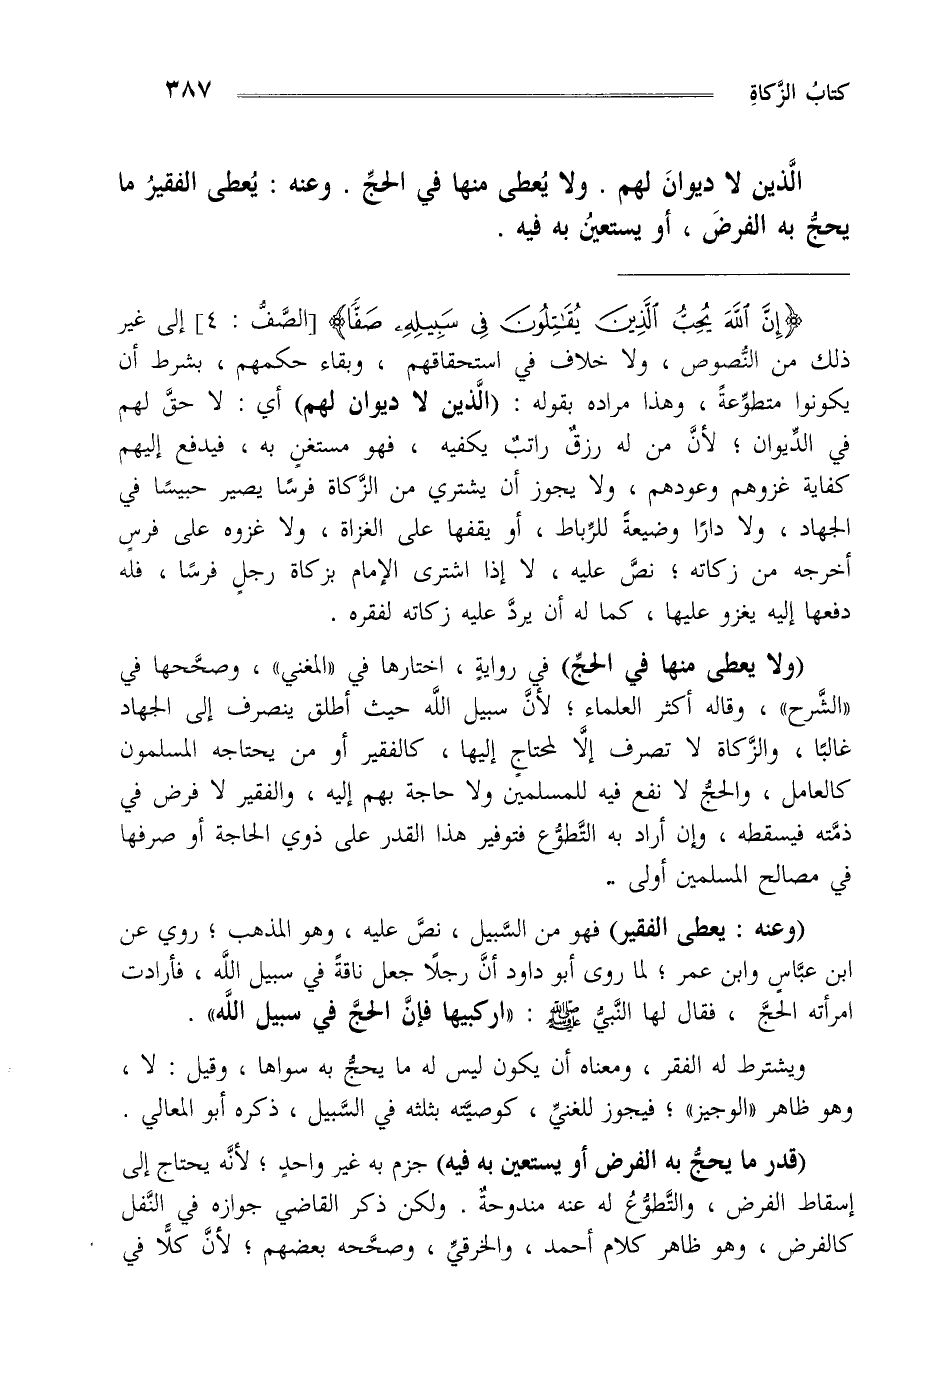 كتابُ الزَّكاةِ ٣٨٧
الَّذين لا ديوانَ لهم . ولا يُعطى منها في الحجِّ . وعنه : يُعطى الفقيرُ ما
يحجُّ به الفرضَ ، أو يستعينُ به فيه .
﴿إِنَّ ٱللَّهَ يُحِبُّ ٱلَّذِينَ يُقَٰتِلُونَ فِى سَبِيلِهِۦ صَفًّا﴾ [الصَّفُّ : ٤] إلى غير
ذلك من النُّصوص ، ولا خلاف في استحقاقهم ، وبقاء حكمهم ، بشرط أن
يكونوا متطوِّعةً ، وهذا مراده بقوله : (الَّذين لا ديوان لهم) أي : لا حقَّ لهم
في الدِّيوان ؛ لأنَّ من له رزقٌ راتبٌ يكفيه ، فهو مستغنٍ به ، فيدفع إليهم
كفاية غزوهم وعودهم ، ولا يجوز أن يشتري من الزَّكاة فرسًا يصير حبيسًا في
الجهاد ، ولا دارًا وضيعةً للرِّباط ، أو يقفها على الغزاة ، ولا غزوه على فرسٍ
أخرجه من زكاته ؛ نصَّ عليه ، لا إذا اشترى الإمام بزكاة رجلٍ فرسًا ، فله
دفعها إليه يغزو عليها ، كما له أن يردَّ عليه زكاته لفقره .
(ولا يعطى منها في الحجِّ) في روايةٍ ، اختارها في «المغني» ، وصحَّحها في
«الشَّرح» ، وقاله أكثر العلماء ؛ لأنَّ سبيل اللَّه حيث أطلق ينصرف إلى الجهاد
غالبًا ، والزَّكاة لا تصرف إلَّا لمحتاجٍ إليها ، كالفقير أو من يحتاجه المسلمون
كالعامل ، والحجُّ لا نفع فيه للمسلمين ولا حاجة بهم إليه ، والفقير لا فرض في
ذمَّته فيسقطه ، وإن أراد به التَّطوُّع فتوفير هذا القدر على ذوي الحاجة أو صرفها
في مصالح المسلمين أولى ..
(وعنه : يعطى الفقير) فهو من السَّبيل ، نصَّ عليه ، وهو المذهب ؛ روي عن
ابن عبَّاسٍ وابن عمر ؛ لما روى أبو داود أنَّ رجلًا جعل ناقةً في سبيل اللَّه ، فأرادت
امرأته الحجَّ ، فقال لها النَّبيُّ ﷺ : «اركبيها فإنَّ الحجَّ في سبيل اللَّه» .
ويشترط له الفقر ، ومعناه أن يكون ليس له ما يحجُّ به سواها ، وقيل : لا ،
وهو ظاهر «الوجيز» ؛ فيجوز للغنيِّ ، كوصيَّته بثلثه في السَّبيل ، ذكره أبو المعالي .
(قدر ما يحجُّ به الفرض أو يستعين به فيه) جزم به غير واحدٍ ؛ لأنَّه يحتاج إلى
إسقاط الفرض ، والتَّطوُّعُ له عنه مندوحةٌ . ولكن ذكر القاضي جوازه في النَّفل
كالفرض ، وهو ظاهر كلام أحمد ، والخرقيِّ ، وصحَّحه بعضهم ؛ لأنَّ كلًّا في